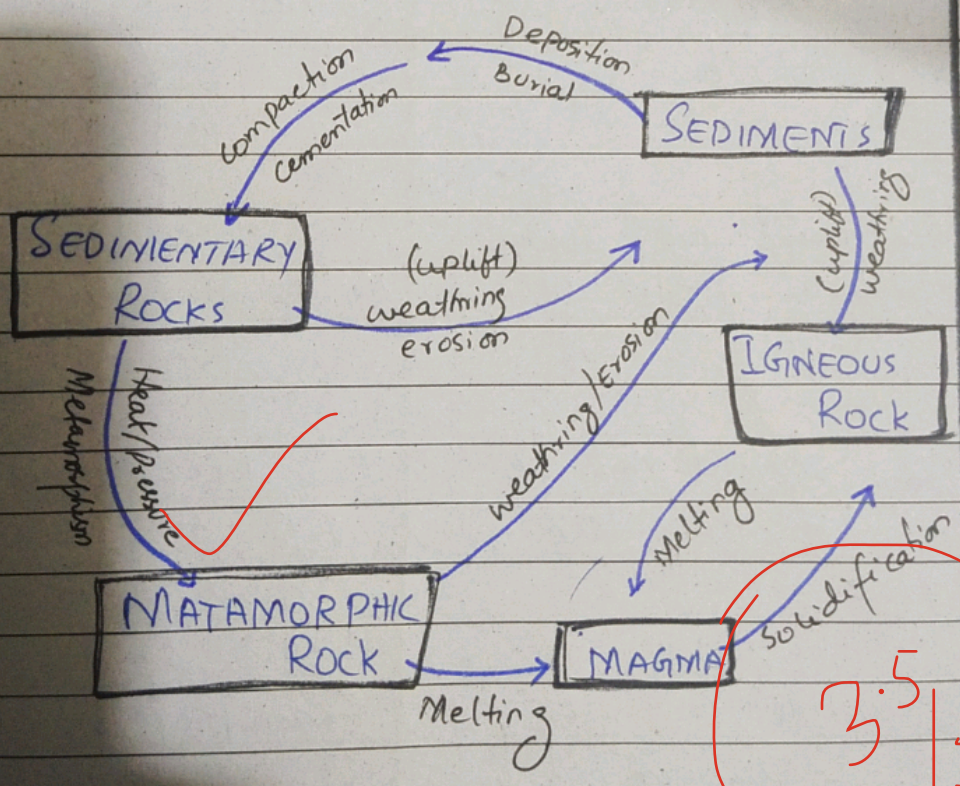 Deposition
Burial
compaction
cementation
SEDIMENTS
(uplift)
weathring
SEDIMENTARY
ROCKS
(uplift)
weathring
erosion
IGNEOUS
ROCK
Heat/Pressure
Metamorphism
weathring/Erosion
Melting
Solidification
MATAMORPHIC
ROCK
MAGMA
Melting
3.5